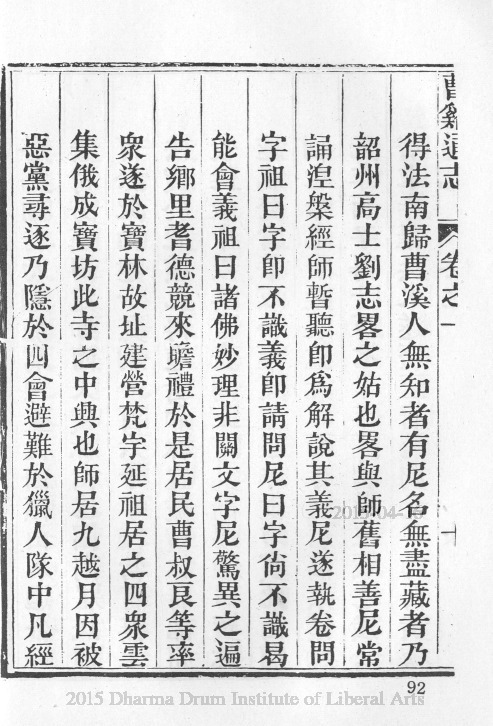 曹溪通志 卷之一
十
得法南歸曹溪人無知者有尼名無盡藏者乃
韶州高士劉志畧之姑也畧與師舊相善尼常
誦湼槃經師暫聽卽爲解說其義尼遂執卷問
字祖曰字卽不識義卽請問尼曰字尙不識曷
能會義祖曰諸佛妙理非關文字尼驚異之遍
告鄕里耆德競來瞻禮於是居民曹叔良等率
衆遂於寶林故址建營梵宇延祖居之四衆雲
集俄成寶坊此寺之中興也師居九越月因被
惡黨尋逐乃隱於四會避難於獵人隊中凡經
92
2015 Dharma Drum Institute of Liberal Arts